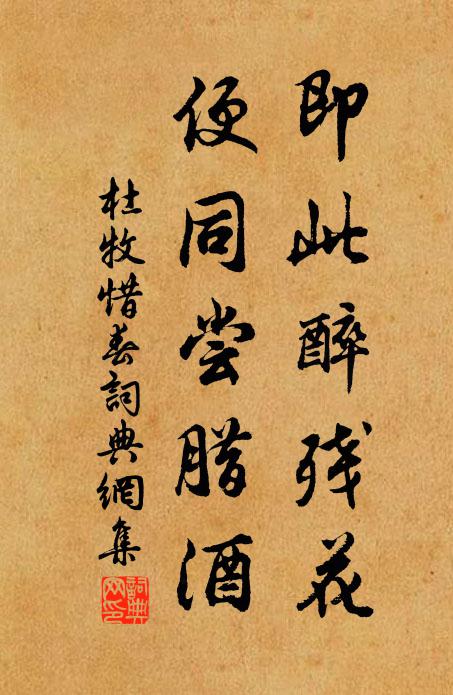 即此醉残花
便同尝腊酒
杜牧惜春詞典網集
詞典网印